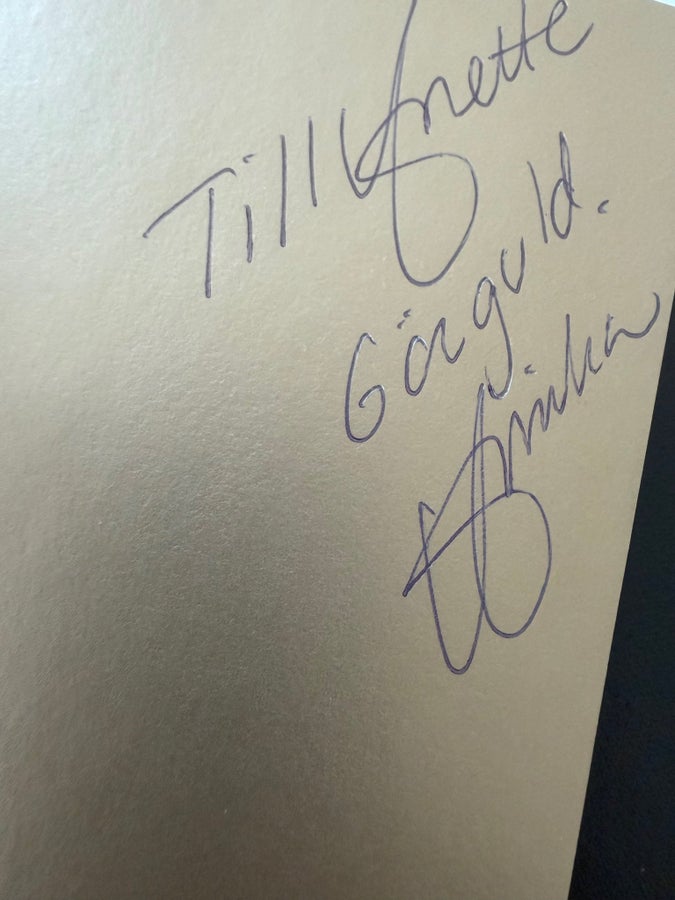 Till Anette
Gör guld.
Annika